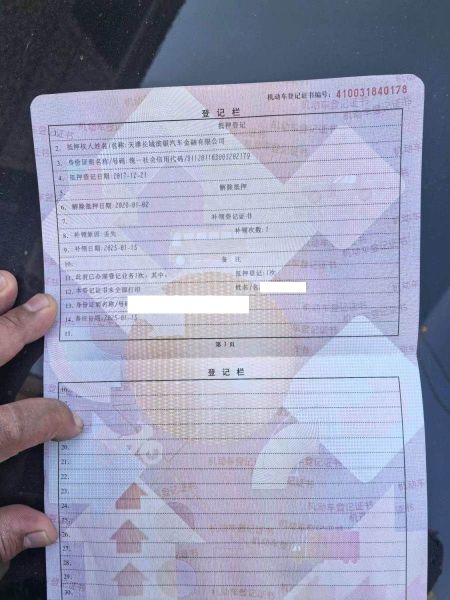 机动车登记证书编号：410031840178
登记栏
1. 抵押登记
2. 抵押权人姓名/名称：天津长城滨银汽车金融有限公司
3. 身份证明名称/号码：统一社会信用代码/
4. 抵押登记日期：2017-12-21
5. 解除抵押
6. 解除抵押日期：2020-01-02
7. 补领登记证书
8. 补领原因：丢失 补领次数：1
9. 补领日期：2025-01-15
10. 备注
11. 此前已办理登记业务1次，其中： 抵押登记：1次
12. 本登记证书未全部打印 姓名/名
13. 身份证明名称/号码
14. 备注日期：2025-01-15
15.
第3页
登记栏
16.
20.
21.
22.
23.
24.
25.
26.
27.
28.
29.
30.